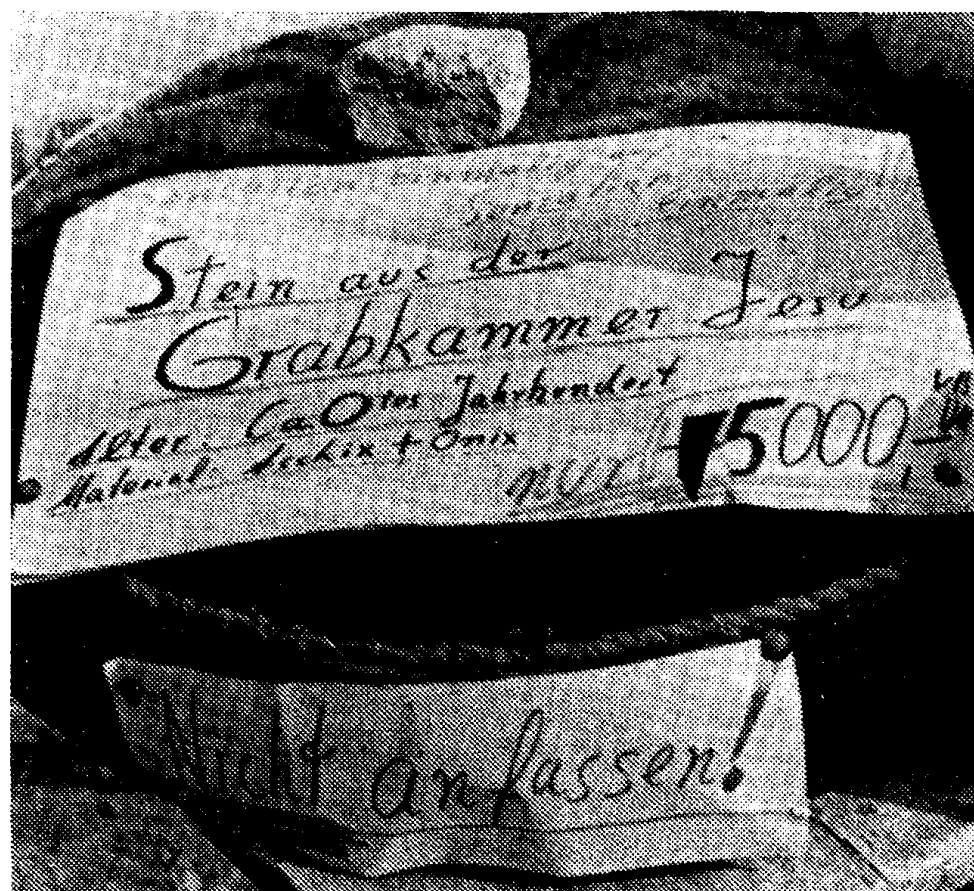 Stein aus der
Grabkammer Jesu
Alter: Ca. 0tes Jahrhendert
Material: + Onix
nur 15000,-
Nicht anfassen!